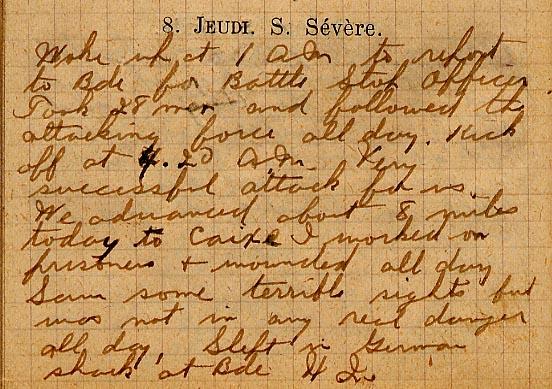 8. JEUDI. S. Sévère.
Woke up at 1 A.M. to report
to Bde for Battle Stop Officer
Took 28 men and followed the
attacking force all day. Kick
off at 4.20 A.M. Very
successful attack for us.
We advanced about 8 miles
today to Caixe I worked on
prisoners + wounded all day
Saw some terrible sights but
was not in any real danger
all day. Slept in German
shack at Bde H Q.